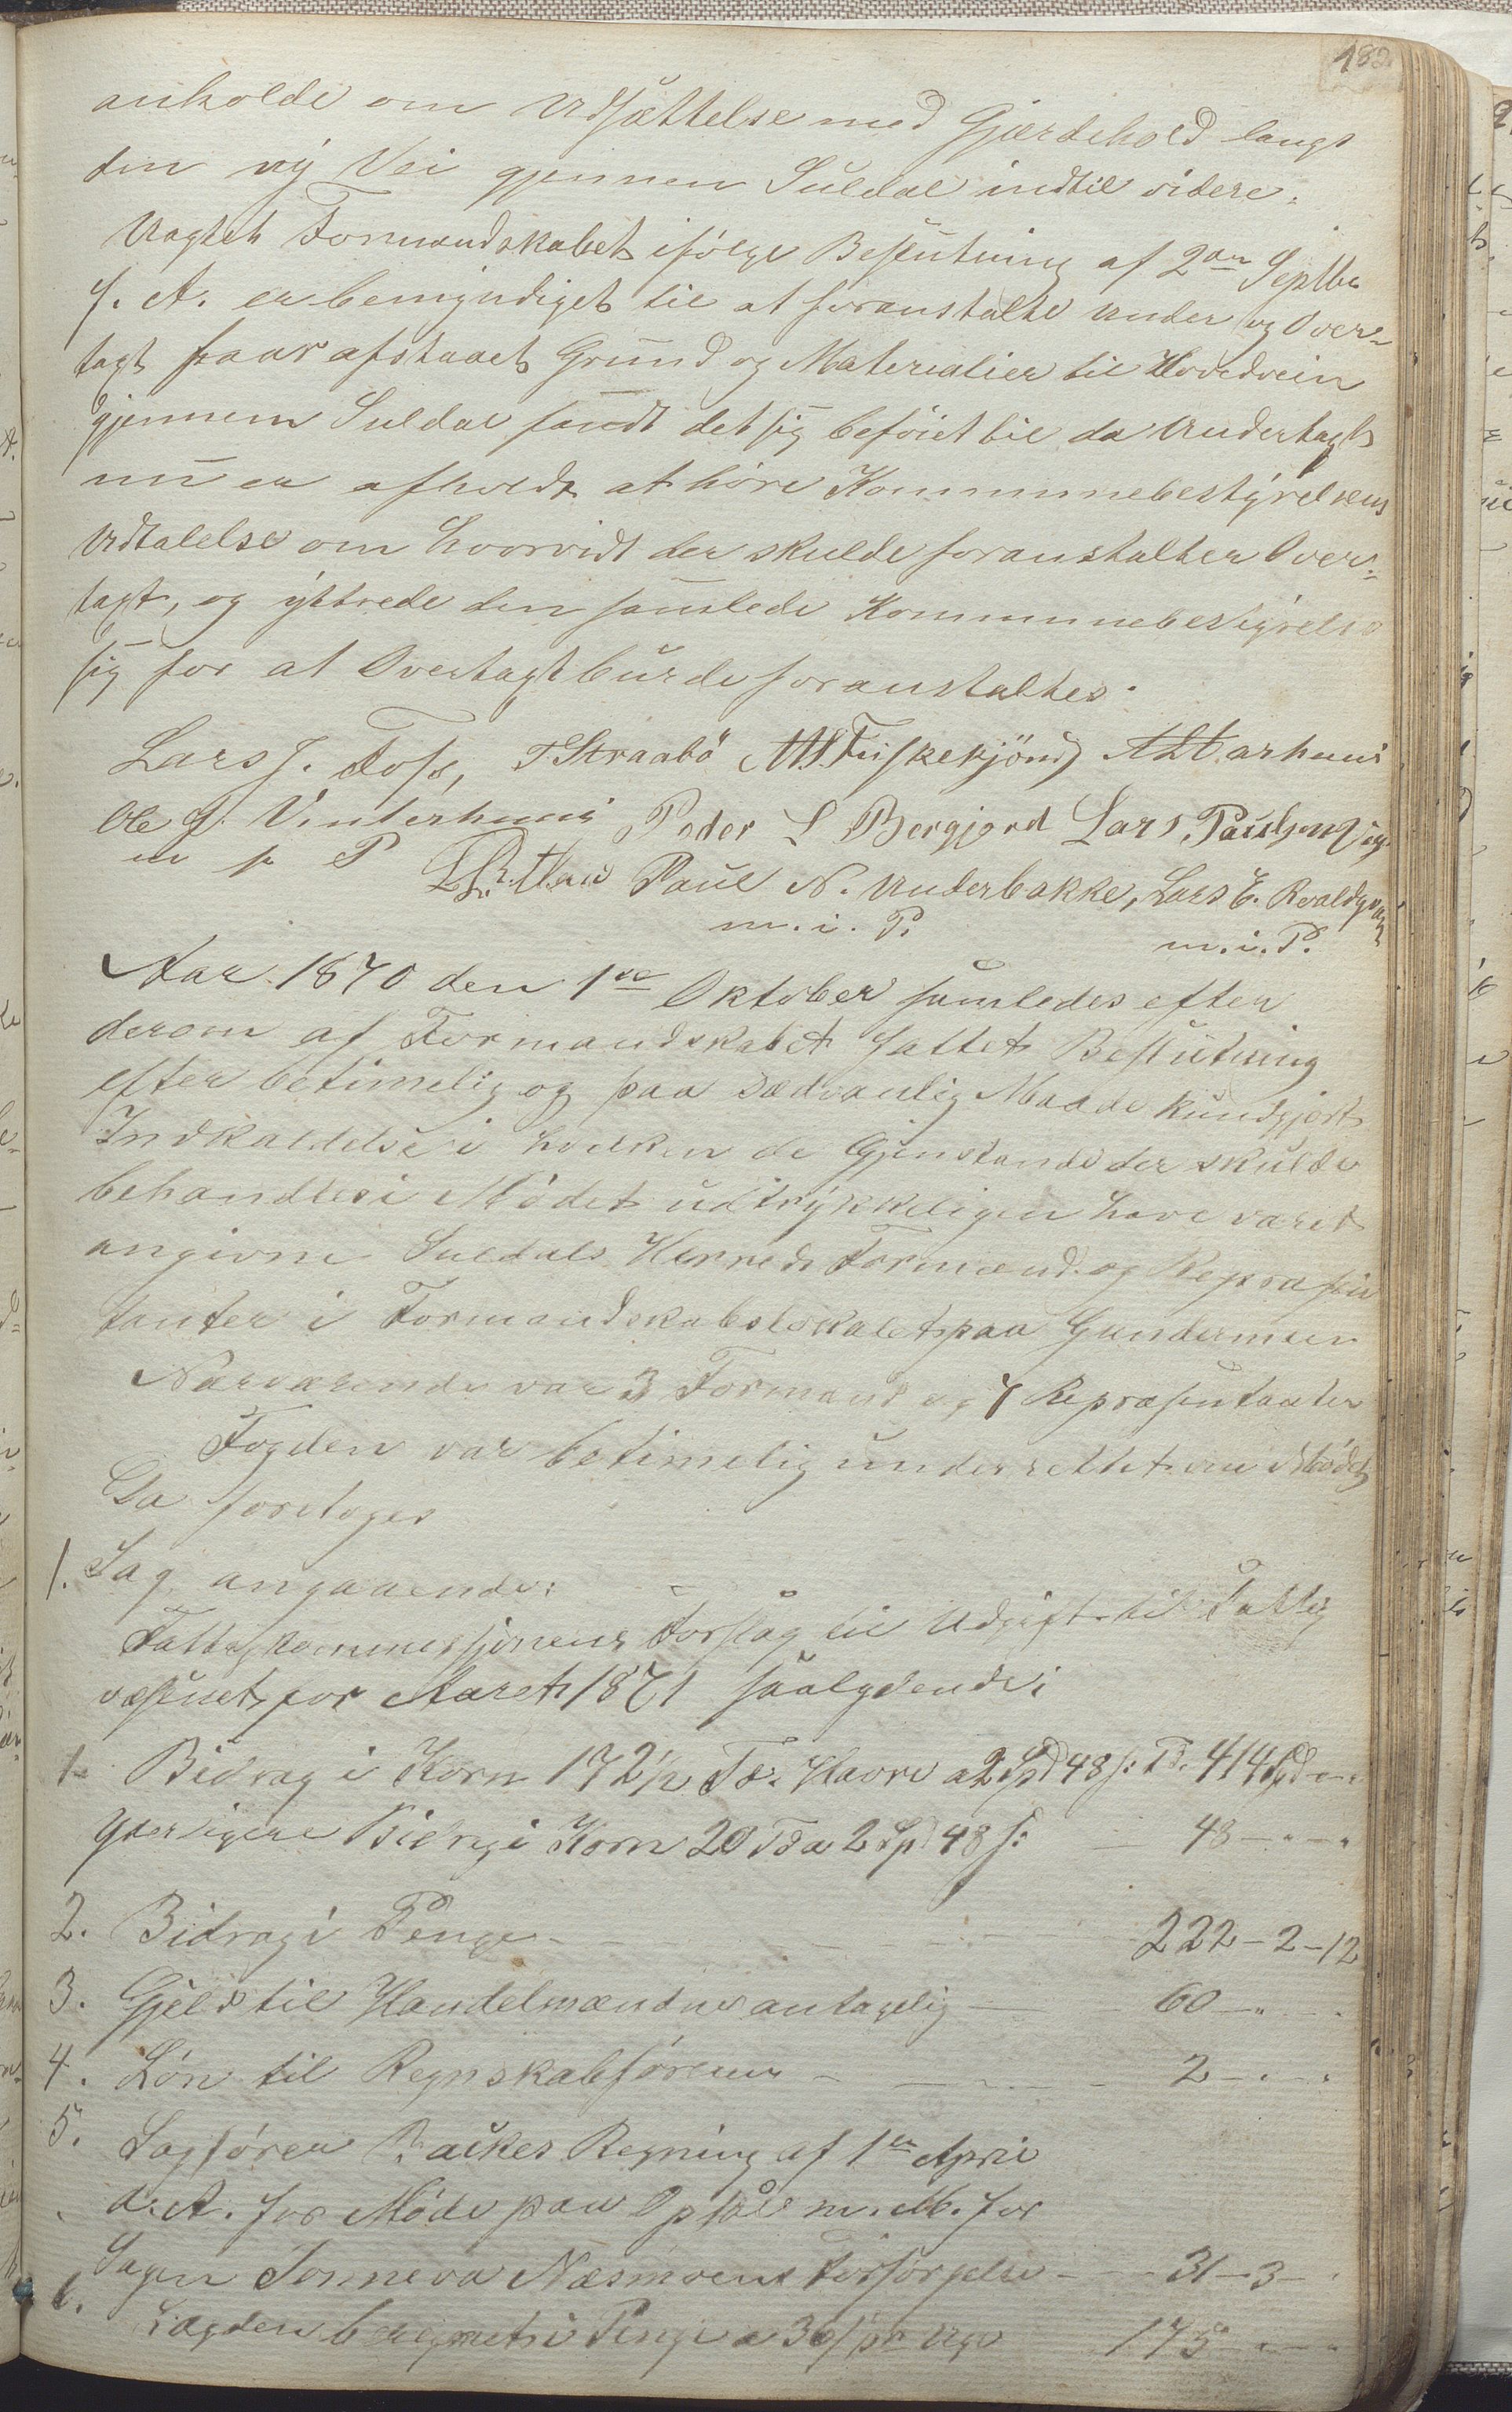 182
anholde om Udsættelse med Gjærdehold langs
den ny Vei gjennem Suldal indtil videre.
Uagtet Formandskabet ifølge Beslutning af 2den Septbr
f. A. er bemyndiget til at foranstalte Under og Over-
tagt paa afstaaet Grund og Materialier til Hovedveien
gjennem Suldal fandt det sig beføiet til da Undertagt
nu er afholdt at høre Kommunebestyrelsens
Udtalelse om hvorvidt der skulde foranstaltes Over-
tagt, og yttrede den samlede Kommunebestyrelse
sig for at Overtagt burde foranstaltes.
Lars J. Foss, T Straabø Fiskekjønd Aarhuus
Ole J. Vinterhuus Peder L Bergjord Lars Paulsen
m P Paul N. Underbakke, Lars E.
m. i. P. m. i. P.
Aar 1870 den 1ste Oktober samledes efter
derom af Formandskabet fattet Beslutning
efter betimelig og paa sædvanlig Maade kundgjort
Indkaldelse i hvilken de Gjenstande der skulde
behandles i Mødet udtrykkeligen have været
angivne Suldals Herreds Formænd og Repræsen
tanter i Formandskabslokalet paa Gunderneen
Nærværende var 3 Formænd og 7 Repræsentanter
Fogden var betimelig underrettet om Mødet
Da foretoges
1. Sag angaaende:
Fattigkommissjonens Forslag til Udgift til Fattig
væsenet for Aaret 1871 saalydende:
1. Bidrag i Korn 172 1/2 Td. Havre a 2 Spd 48 s: Td. 414 Spd - " - "
Yderligere Bidrag i Korn 20 Td a 2 Spd 48 s: - 48 - " - "
2. Bidrag i Penge - 222 - 2 - 12
3. Gjeld til Handelsmændene antagelig - 60 - " - "
4. Løn til Regnskabsføreren - 2 - " - "
5. Sagfører Backes Regning af 1ste April
d. A. for Møde paa Opsal m. M. for
Sagen Sonneva Næsmoens Forsørgelse - 31 - 3 - "
6. Lægden beregnet i Penge a 36 s pr Uge 175 - " - "